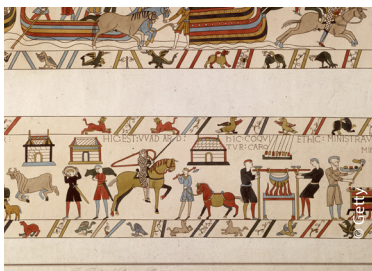 HIC EST: VVAD ARD:
HIC COQVI
TVR: CARO
ET HIC: MINISTRAV
MI
© Getty